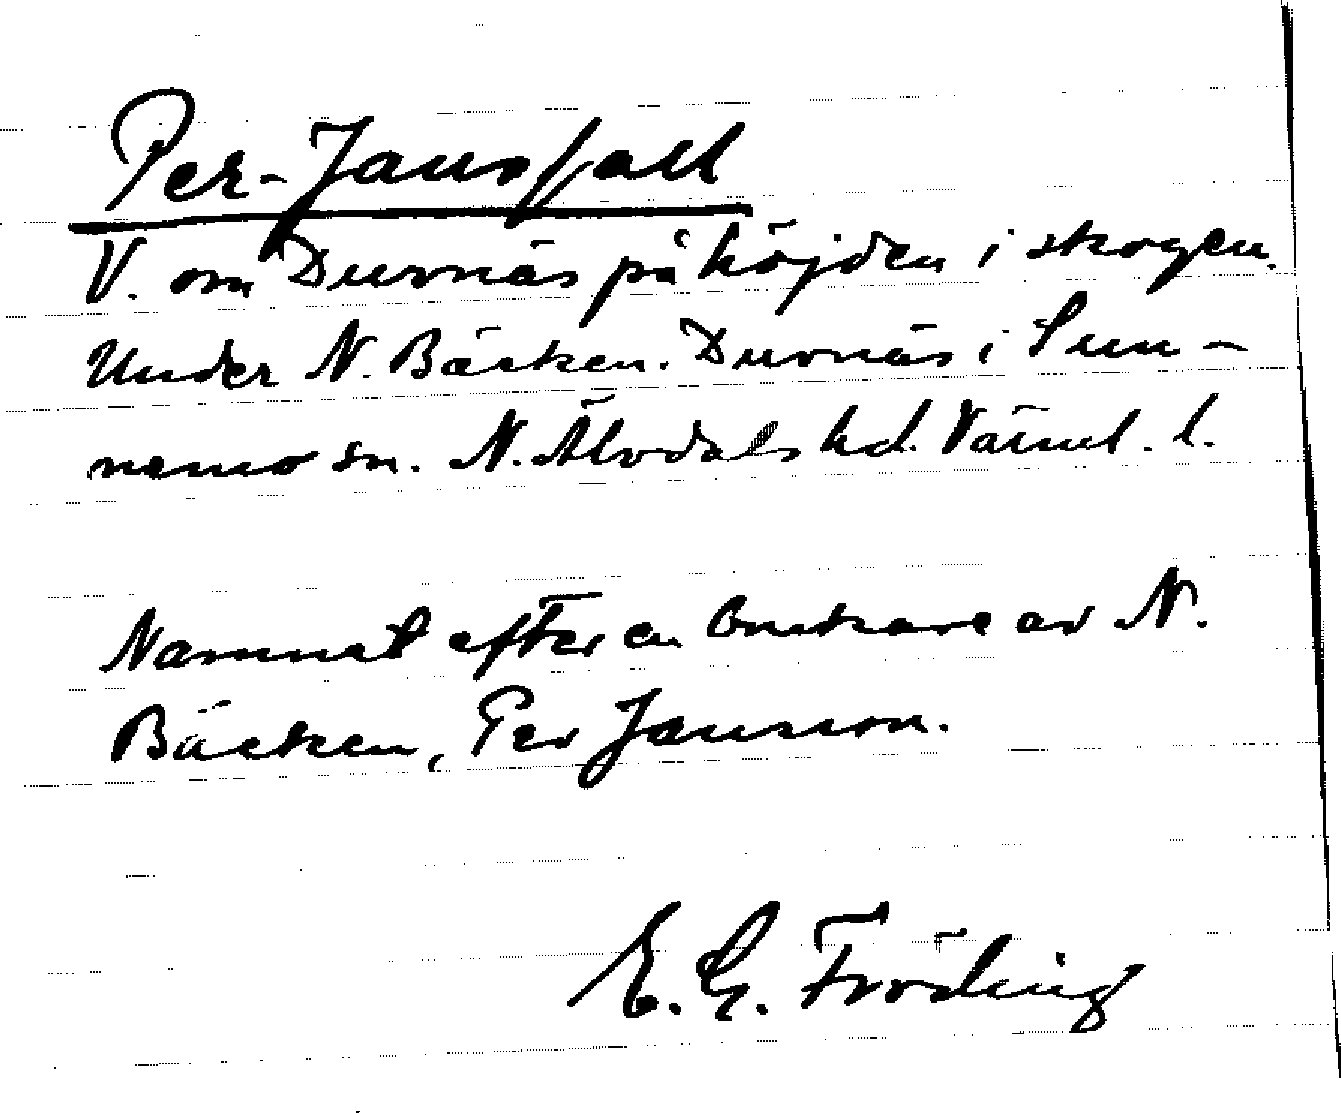 Per-Jansfall
V. om Durnäs på höjden i skogen.
Under N. Bäcken. Durnäs i Sun-
nemo sn. N. Älvdals hd. Värml. l.
Namnet efter en brukare av N.
Bäcken, Per Jansson.
E. G. Fröding